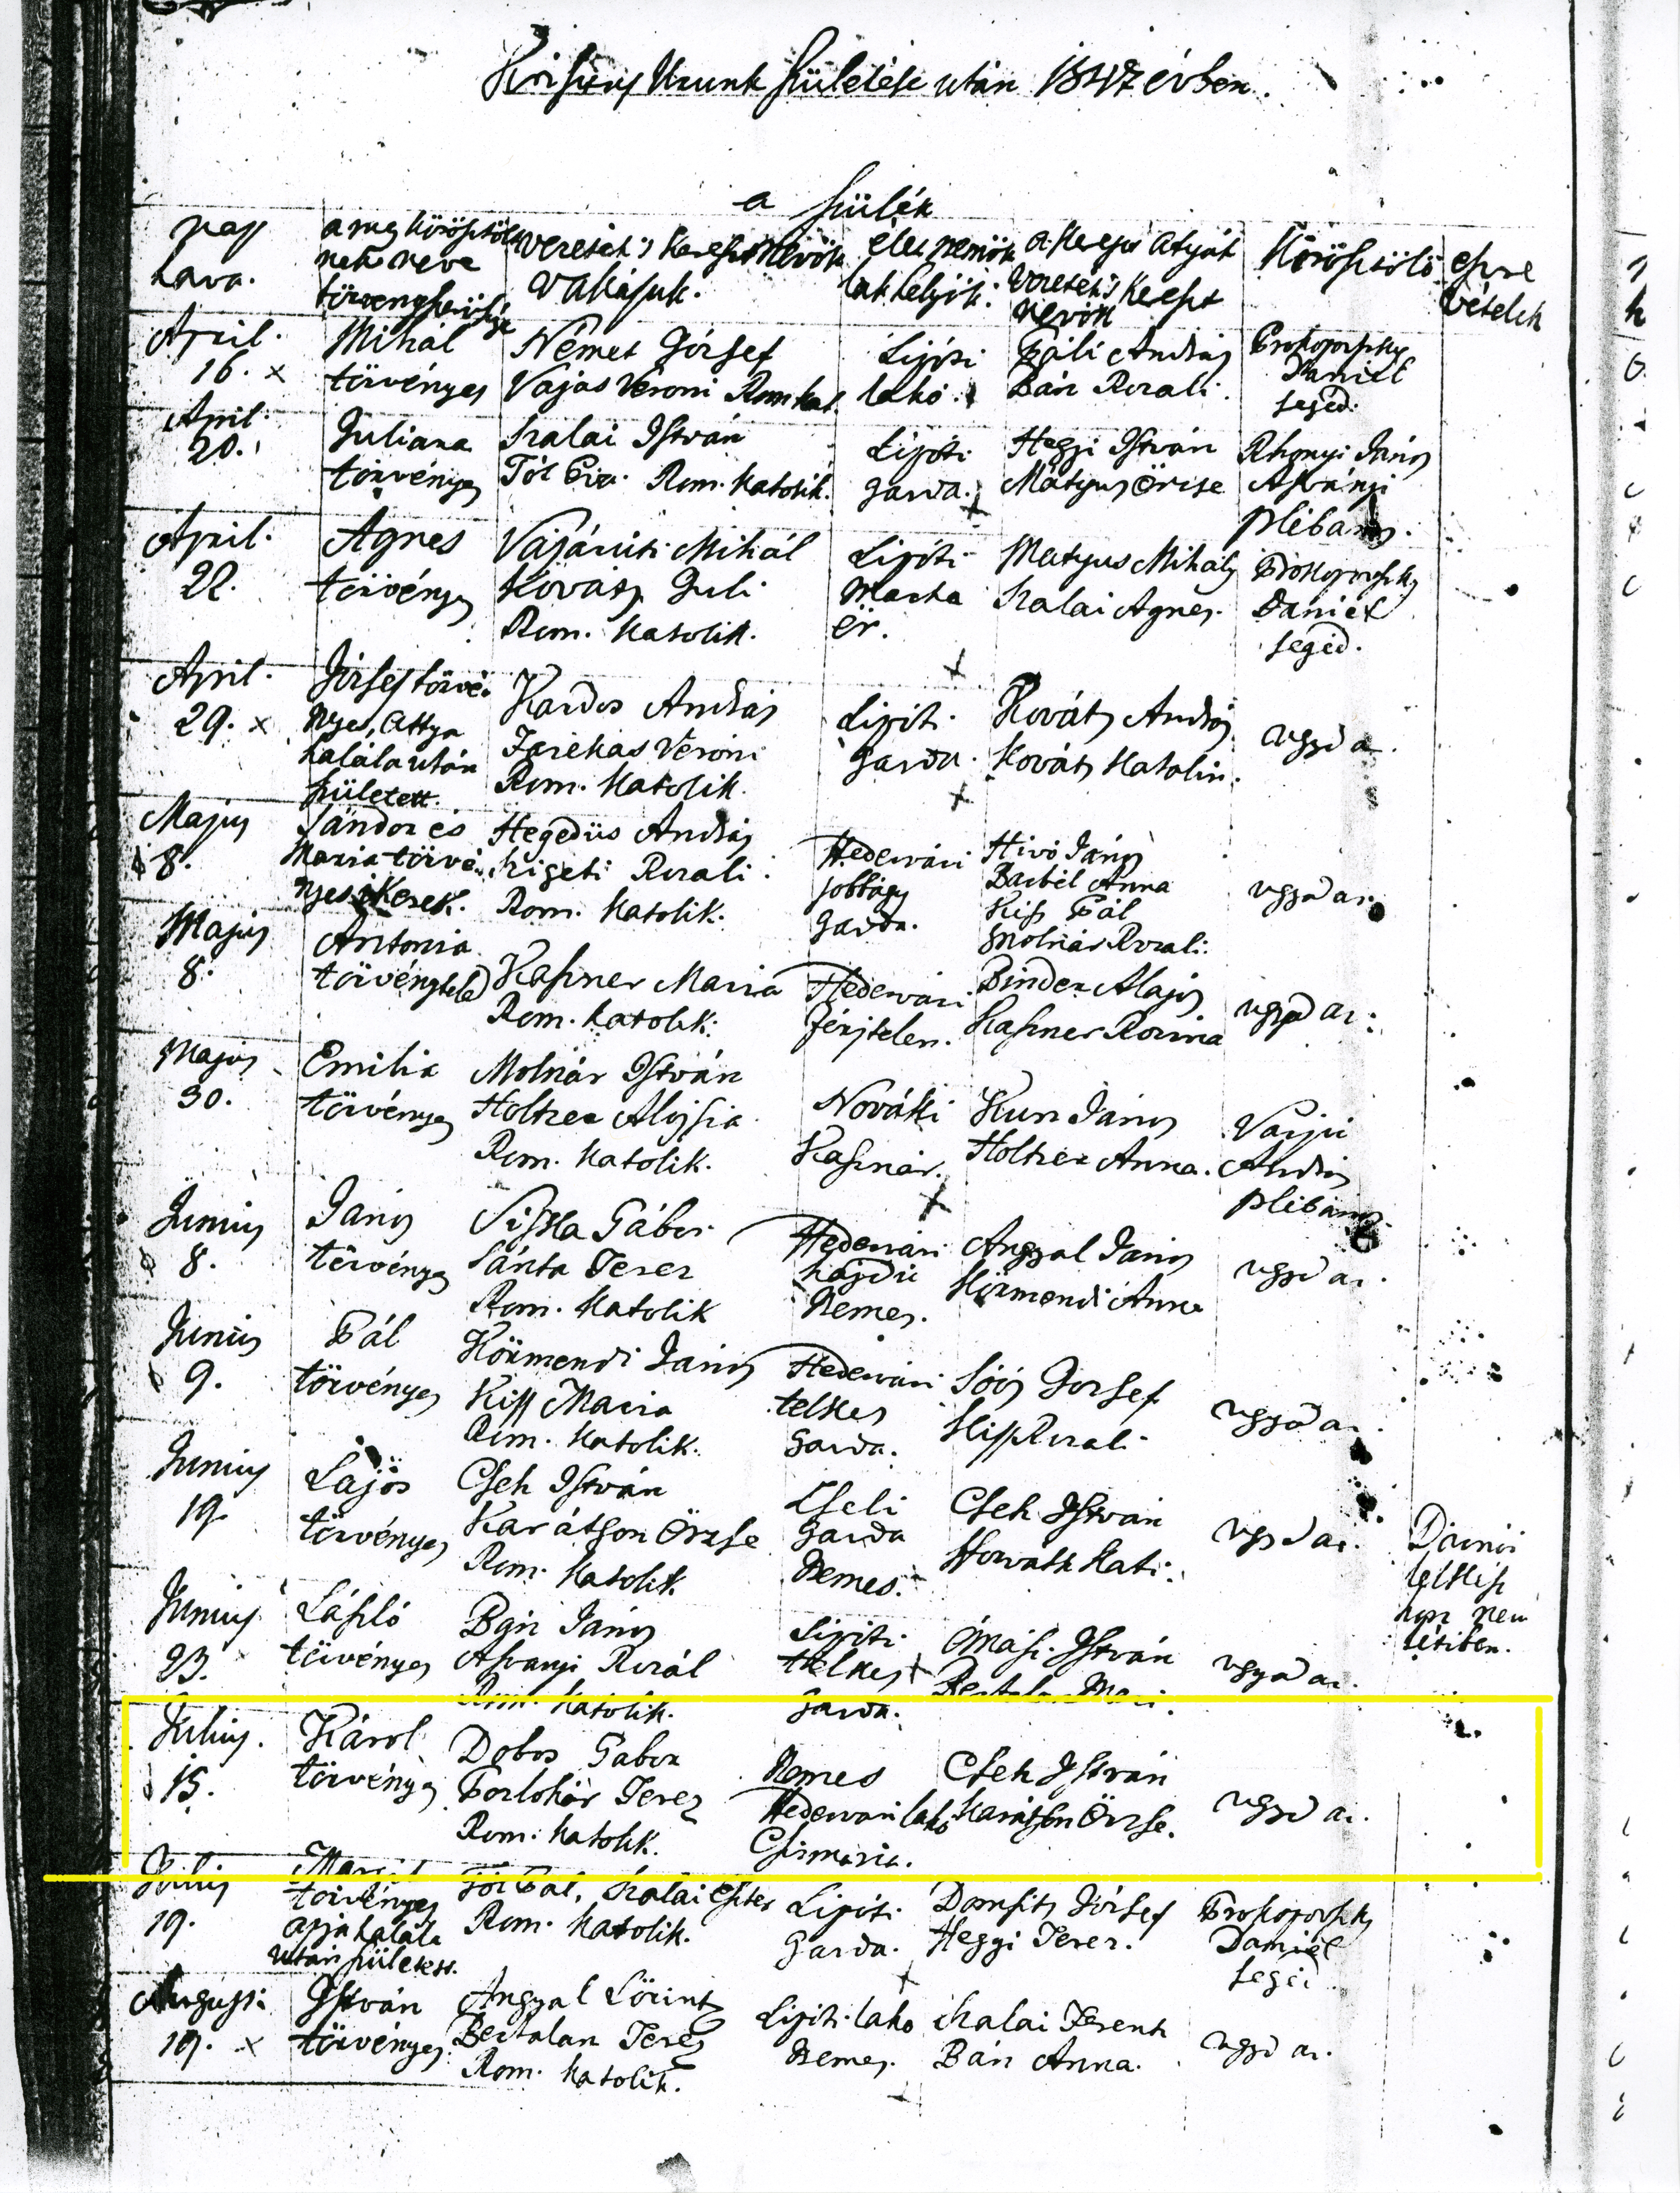 Krisztus Urunk születése után 1847 évben.
a szülék
nap
hava.
a meg köröszteltt
nek neve
törvényszerüsége
vezeték 's kereszt nevök
vallásuk.
élet nemök
lakhelyök:
a kereszt atyák
vezeték 's kereszt
nevök
Körösztölö
észre
vételek
April.
16. x
Mihál
törvényes
Német József
Vajas Veroni Rom kat.
Lipóti
lakó.
Páli András
Bán Rozali.
Prokopovszky
Daniel
segéd.
April.
20.
Juliana
törvényes
Szalai István
Tót Eva. Rom. Katolik.
Lipóti
gazda.
Heggi István
Mátyus Örise
János
Asványi
plébanos.
April.
22.
Agnes
törvényes
Mihál
Kovács Juli
Rom. Katolik.
Lipóti
Marha
ör.
Matyus Mihály
Szalai Agnes.
Prokopovszky
Daniel
segéd.
April.
29. x
József törvé-
nyes, Attya
halála után
született.
Kardos András
Farkas Veroni
Rom. Katolik.
Lipóti
gazda.
Kováts András
Kováts Katalin.
ugyd az.
Majus
8.
Sándor és
Maria törvé-
nyes ikerek.
Hegedüs András
Szigeti Rozali
Rom. Katolik.
Hedervári
jobbágy
gazda.
Hivó János
Barbél Anna
Kiss Pál
Molnár Rozali.
ugyd az.
Majus
8.
Antonia
törvénytelen
Kaszner Maria
Rom. Katolik.
Hedervári
férjtelen.
Binder Alajos
Kaszner Rozina
ugyd az.
Majus
30.
Emilia
törvényes
Molnár István
Holtzer Alojsia
Rom. Katolik.
Nováki
Kasznár.
Kun János
Holtzer Anna.
Vajju
András
plébanos.
Junius
8.
János
törvényes
Gábor
Sánta Terez
Rom. Katolik
Hedervári
hajdú
Nemes.
Angyal János
Körmendi Anna
ugyd az.
Junius
9.
Pál
törvényes
Körmendi János
Kiss Maria
Rom. Katolik.
Hedervári
telkes
gazda.
Soós Jozsef
Rozali
ugyd az.
Junius
19.
Lajos
törvényes
Cseh István
Karátson Örzse
Rom. Katolik
Zseli
gazda
Nemes.
Cseh István
Horváth Kati.
ugyd az.
Junius
23.
László
törvényes
János
Asványi Rozál
Rom. Katolik.
Lipóti
telkes
gazda.
István
Bertalan Mari.
ugyd az.
Julius.
15.
Károl
törvényes
Dobos Gabor
Porlohár Terez
Rom. Katolik.
Nemes
Hedervári lakó
Csizmazia.
Cseh István
Karátson Örzse.
ugyd az.
Julius
19.
törvényes
apja halála
után született.
Tót Pál, Szalai Eszter
Rom. Katolik.
Lipóti
gazda.
József
Heggi Terez.
Prokopovszky
Daniel
segéd.
Augusti
19. x
István
törvényes
Angyal Lörintz
Bertalan Terez
Rom. Katolik.
Lipóti lakó
Nemes.
Szalai Ferentz
Bán Anna.
ugyd az.